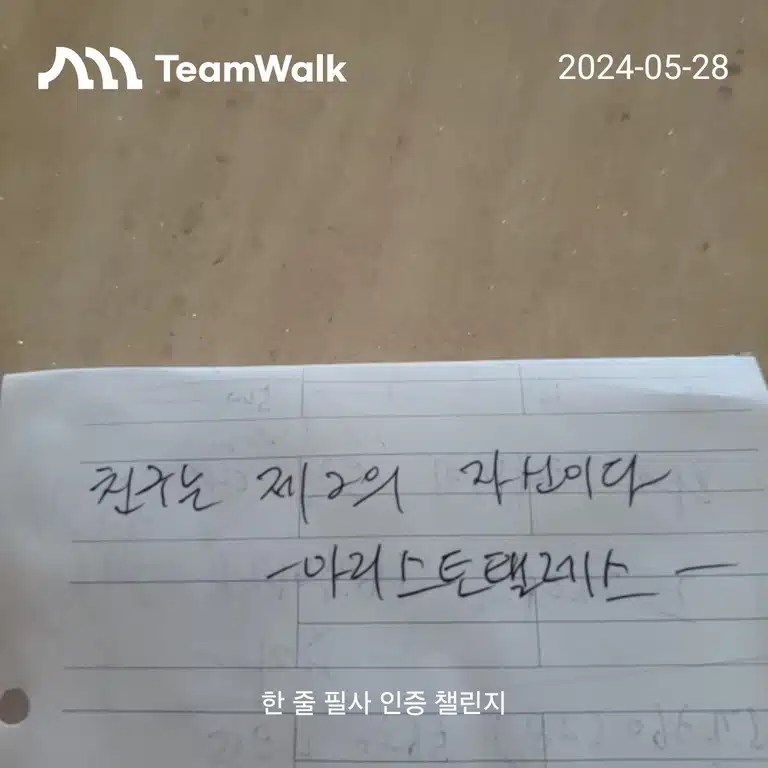 TeamWalk
2024-05-28
친구는 제2의 자신이다
-아리스토텔레스-
한 줄 필사 인증 챌린지